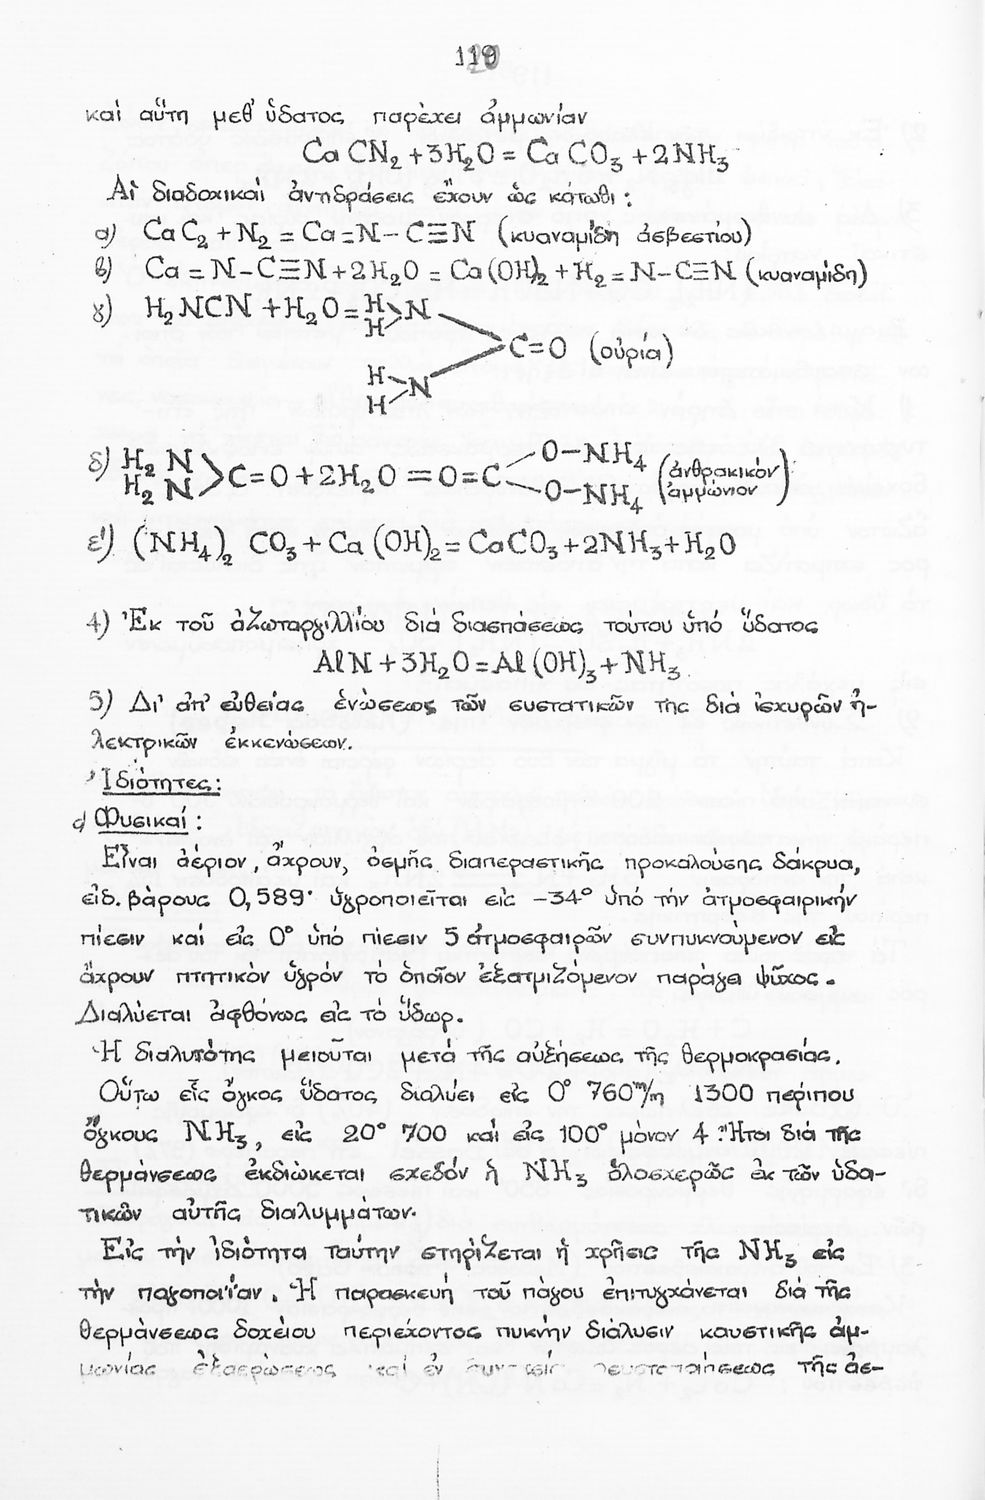 καί αὕτη μεθ' ὕδατος παρέχει ἀμμωνίαν
CaCN₂ + 3H₂O = CaCO₃ + 2NH₃
Αἱ διαδοχικαί ἀντιδράσεις ἔχουν ὡς κάτωθι :
α) CaC₂ + N₂ = Ca=N–C≡N (κυαναμίδη ἀσβεστίου)
β) Ca=N–C≡N + 2H₂O = Ca(OH)₂ + H₂=N–C≡N (κυαναμίδη)
γ) H₂NCN + H₂O = H H > N
C=O (οὐρία)
H H > N
δ) H₂N H₂N > C=O + 2H₂O = O=C < O–NH₄ O–NH₄ (ἀνθρακικόν ἀμμώνιον)
ε) (NH₄)₂ CO₃ + Ca(OH)₂ = CaCO₃ + 2NH₃ + H₂O
4) Ἐκ τοῦ ἀζωταργιλλίου διά διασπάσεως τούτου ὑπό ὕδατος
AlN + 3H₂O = Al(OH)₃ + NH₃.
5) Δι' ἀπ' εὐθείας ἑνώσεως τῶν συστατικῶν της διά ἰσχυρῶν ἠ-
λεκτρικῶν ἐκκενώσεων.
Ἰδιότητες :
α) Φυσικαί :
Εἶναι ἀέριον, ἄχρουν, ὀσμῆς διαπεραστικῆς προκαλούσης δάκρυα,
εἰδ. βάρους 0,589· ὑγροποιεῖται εἰς –34° ὑπό τήν ἀτμοσφαιρικήν
πίεσιν καί εἰς 0° ὑπό πίεσιν 5 ἀτμοσφαιρῶν συνπυκνούμενον εἰς
ἄχρουν πτητικόν ὑγρόν τό ὁποῖον ἐξατμιζόμενον παράγει ψῦχος.
Διαλύεται ἀφθόνως εἰς τό ὕδωρ.
Ἡ διαλυτότης μειοῦται μετά τῆς αὐξήσεως τῆς θερμοκρασίας.
Οὕτω εἷς ὄγκος ὕδατος διαλύει εἰς 0° 760 m/m 1300 περίπου
ὄγκους NH₃, εἰς 20° 700 καί εἰς 100° μόνον 4. Ἤτοι διά τῆς
θερμάνσεως ἐκδιώκεται σχεδόν ἡ NH₃ ὁλοσχερῶς ἐκ τῶν ὑδα-
τικῶν αὐτῆς διαλυμμάτων.
Εἰς τήν ἰδιότητα ταύτην στηρίζεται ἡ χρῆσις τῆς NH₃ εἰς
τήν παγοποιΐαν. Ἡ παρασκευή τοῦ πάγου ἐπιτυγχάνεται διά τῆς
θερμάνσεως δοχείου περιέχοντος πυκνήν διάλυσιν καυστικῆς ἀμ-
μωνίας ἐξαερώσεως καί ἐν συνεχείᾳ ρευστοποιήσεως τῆς ἀε-